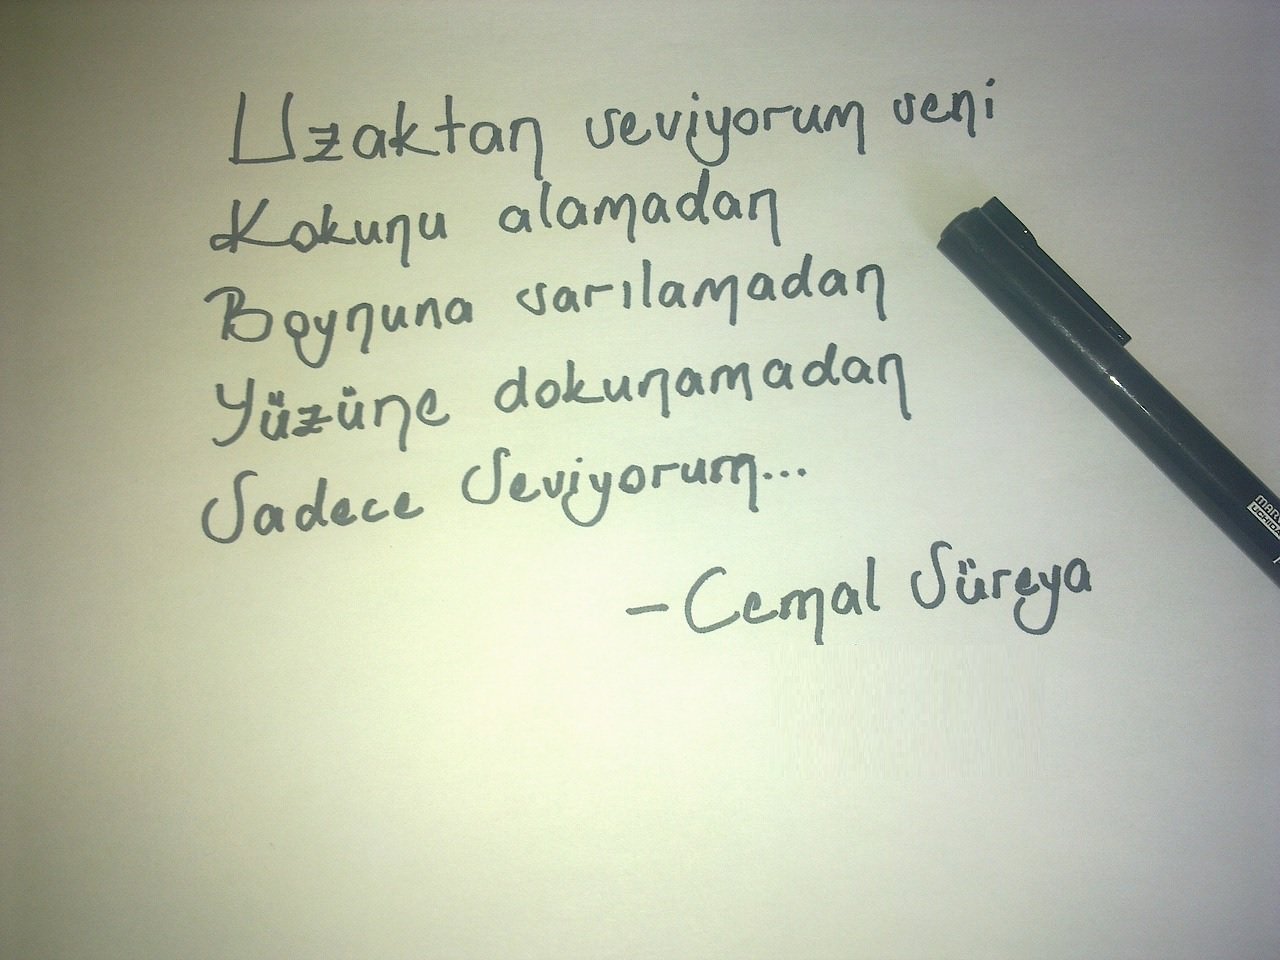 Uzaktan seviyorum seni
Kokunu alamadan
Boynuna sarılamadan
Yüzüne dokunamadan
Sadece Seviyorum...
-Cemal Süreya
UCHIDA